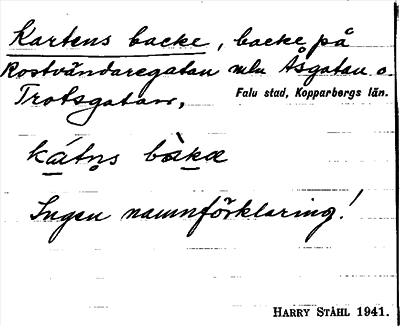 Kartens backe, backe på
Rostvändaregatan mln Åsgatan o.
Trotsgatan,
Falu stad, Kopparbergs län.
kátn̥s bàkæ
Ingen namnförklaring!
HARRY STÅHL 1941.